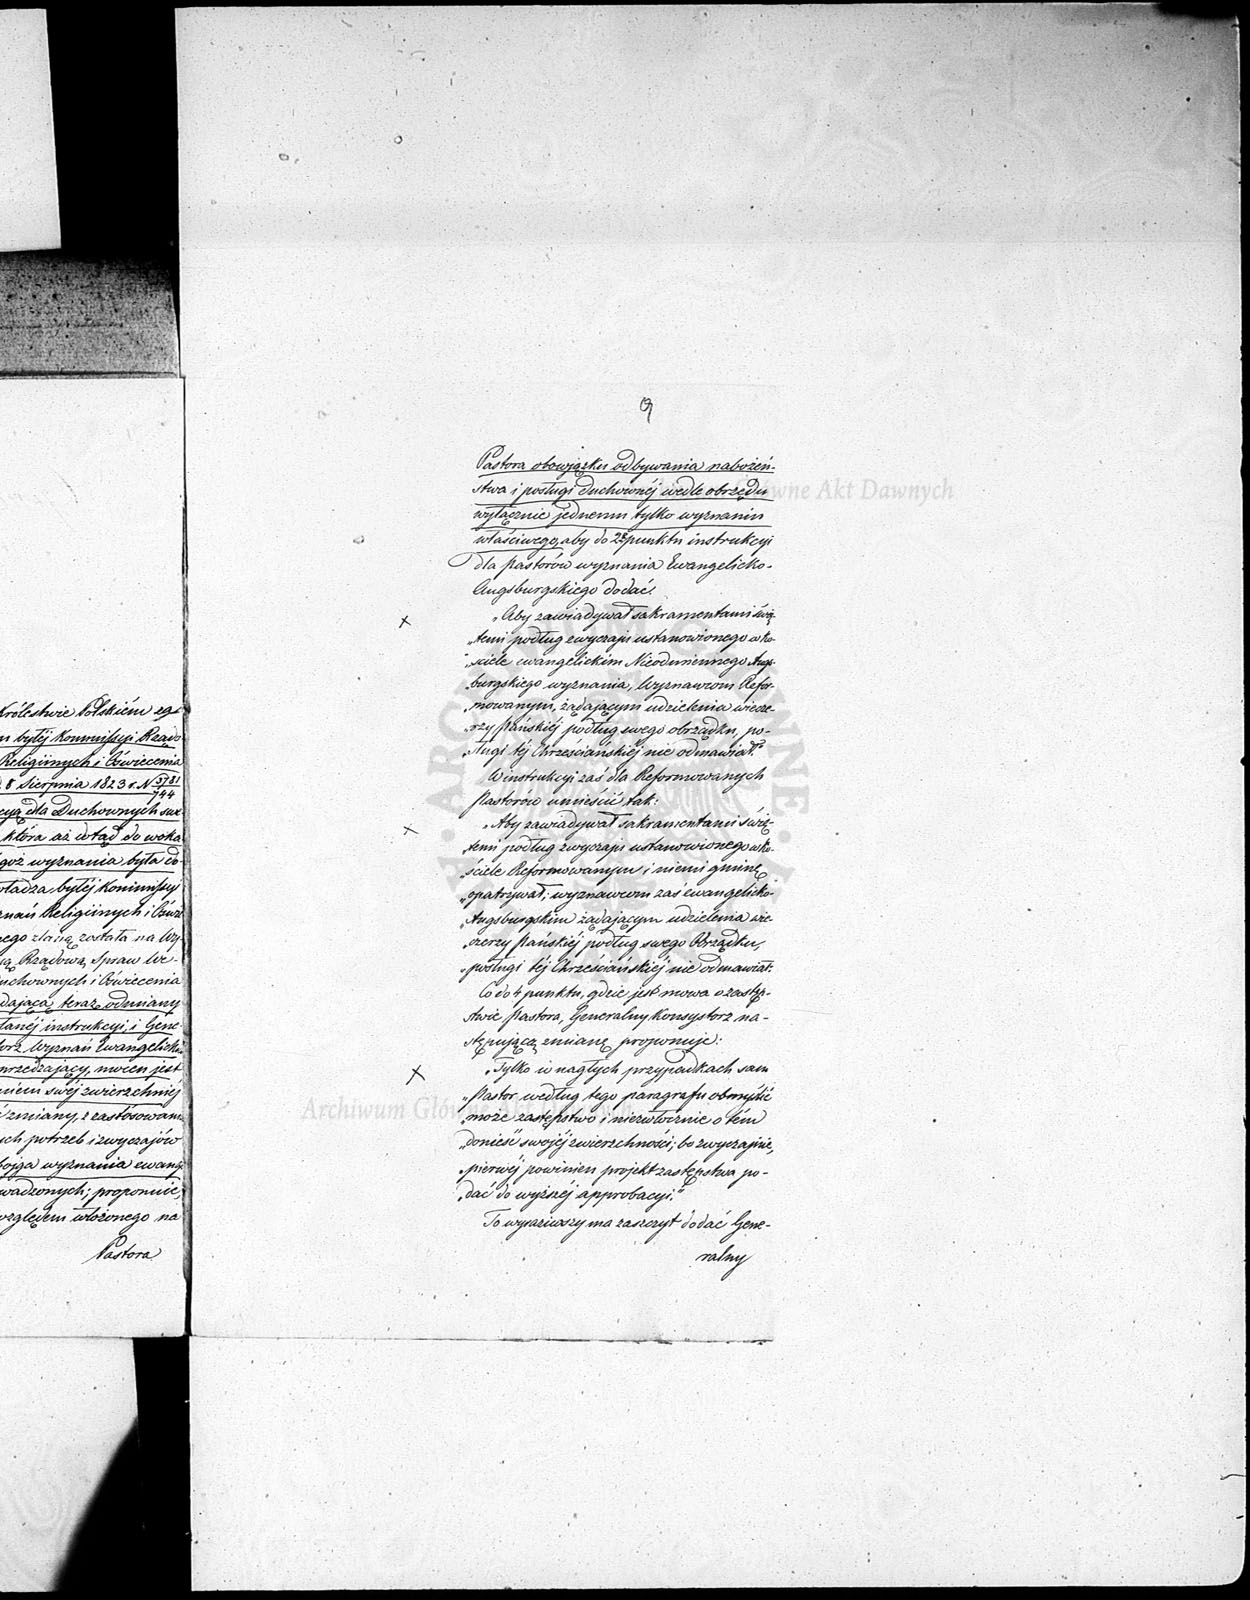 Królestwie Polskiém eg-
m byłéj Kommissyi Rządo
Religiinych i Oświecenia
8 Sierpnia 1823 r. N 5781/744
cyą dla Duchownych
która aż dotąd do woka
goż wyznania była do-
władza byłéj Kommissyi
znań Religiinych i Oświe
nego zlaną została na Wy
ą Rządową Spraw We-
uchownych i Oświecenia
dającą teraz odmiany
łanéj instrukcyi, i Gene-
orz Wyznań Ewangelicki
przedzający, mocen jest
niem swéj zwierzchniéj
zmiany, z zastósowani
ich potrzeb i zwyczajów
bojga wyznania ewang
wadzonych; proponuie,
względem włożonego na
Pastora
9
Pastora obowiązku odbywania nabożeń-
stwa i posługi duchownéj wedle obrzędu
wyłącznie jednemu tylko wyznaniu
właściwego, aby do 2go punktu instrukcyi
dla Pastorów wyznania Ewangelicko-
Augsburgskiego dodać.
„Aby zawiadywał sakramentami świę-
„temi podług zwyczaju ustanowionego w ko-
„ściele ewangelickim Nieodmiennego Augs-
„burgskiego wyznania, Wyznawcom Refor-
„mowanym, żądającym udzielenia wiecze-
„rzy Pańskiéj podług swego obrządku, po-
„sługi téj Chrześciańskiéj nie odmawiał."
W instrukcyi zaś dla Reformowanych
Pastorów umieścić tak:
„Aby zawiadywał sakramentami świę-
„temi podług zwyczaju ustanowionego w ko-
„ściele Reformowanym i niemi gminę
„opatrywał; wyznawcom zaś ewangelicko-
„Augsburgskim żądającym udzielenia wie-
„czerzy Pańskiéj podług swego Obrządku,
„posługi téj Chrześciańskiéj nie odmawiał.
Co do 4 punktu, gdzie jest mowa o zastęp-
stwie Pastora, Generalny Konsystorz na-
stępującą zmianę proponuje:
„Tylko w nagłych przypadkach sam
„Pastor według tego paragrafu obmyślić
„może zastępstwo i niezwłocznie o tém
„donieść swojéj zwierzchności; bo zwyczajnie,
„pierwéj powinien projekt zastępstwa po-
„dać do wyższéj approbacyi."
To wyraziwszy ma zaszczyt dodać Gene-
ralny
Główne Akt Dawnych
Archiwum Główne Akt Dawnych